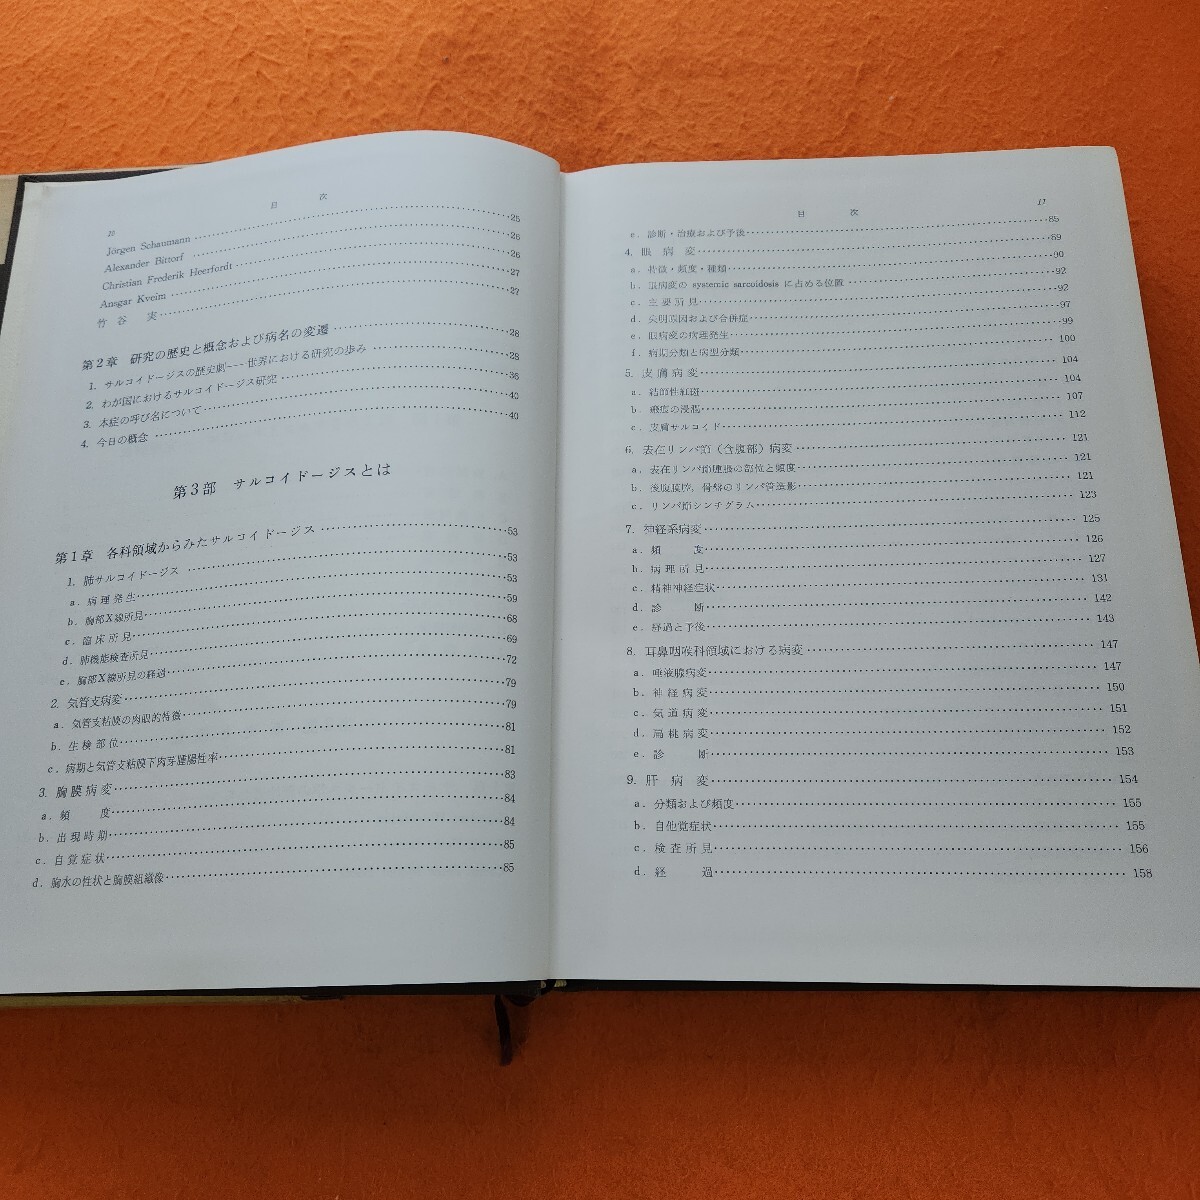 目 次
Jörgen Schaumann 25
Alexander Bittorf 26
Christian Frederik Heerfordt 26
Ansgar Kveim 27
竹谷 実 27
第2章 研究の歴史と概念および病名の変遷 28
1. サルコイドージスの歴史劇---世界における研究の歩み 28
2. わが国におけるサルコイドージス研究 36
3. 本症の呼び名について 40
4. 今日の概念 40
第3部 サルコイドージスとは
第1章 各科領域からみたサルコイドージス 53
1. 肺サルコイドージス 53
a. 病理発生 53
b. 胸部X線所見 59
c. 臨床所見 68
d. 肺機能検査所見 69
e. 胸部X線所見の経過 72
2. 気管支病変 79
a. 気管支粘膜の肉眼的特徴 79
b. 生検部位 81
c. 病期と気管支粘膜下肉芽腫陽性率 81
3. 胸膜病変 83
a. 頻度 84
b. 出現時期 84
c. 自覚症状 85
d. 胸水の性状と胸膜組織像 85
目 次
e. 診断・治療および予後 85
4. 眼病変 89
a. 特徴・頻度・種類 90
b. 眼病変の systemic sarcoidosis に占める位置 92
c. 主要所見 92
d. 失明原因および合併症 97
e. 眼病変の病理発生 99
f. 病期分類と病型分類 100
5. 皮膚病変 104
a. 結節性紅斑 104
b. 瘢痕の浸潤 107
c. 皮膚サルコイド 112
6. 表在リンパ節（含腹部）病変 121
a. 表在リンパ節腫脹の部位と頻度 121
b. 後腹膜腔，骨盤のリンパ管造影 121
c. リンパ節シンチグラム 123
7. 神経系病変 125
a. 頻度 126
b. 病理所見 127
c. 精神神経症状 131
d. 診断 142
e. 経過と予後 143
8. 耳鼻咽喉科領域における病変 147
a. 唾液腺病変 147
b. 神経病変 150
c. 気道病変 151
d. 扁桃病変 152
e. 診断 153
9. 肝病変 154
a. 分類および頻度 155
b. 自他覚症状 155
c. 検査所見 156
d. 経過 158